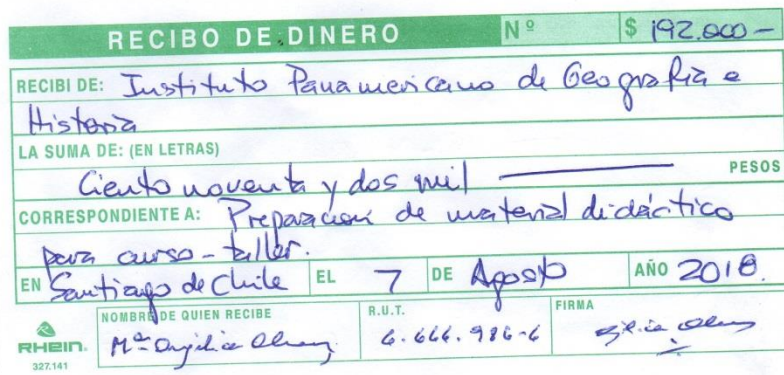 RECIBO DE DINERO Nº $ 192.000-
RECIBI DE: Instituto Panamericano de Geografía e
Historia
LA SUMA DE: (EN LETRAS)
Ciento noventa y dos mil PESOS
CORRESPONDIENTE A: Preparación de material didáctico
para curso-taller.
EN Santiago de Chile EL 7 DE Agosto AÑO 2018.
NOMBRE DE QUIEN RECIBE R.U.T. FIRMA
RHEIN. Mª Angélica 6.666.986-6
327.141